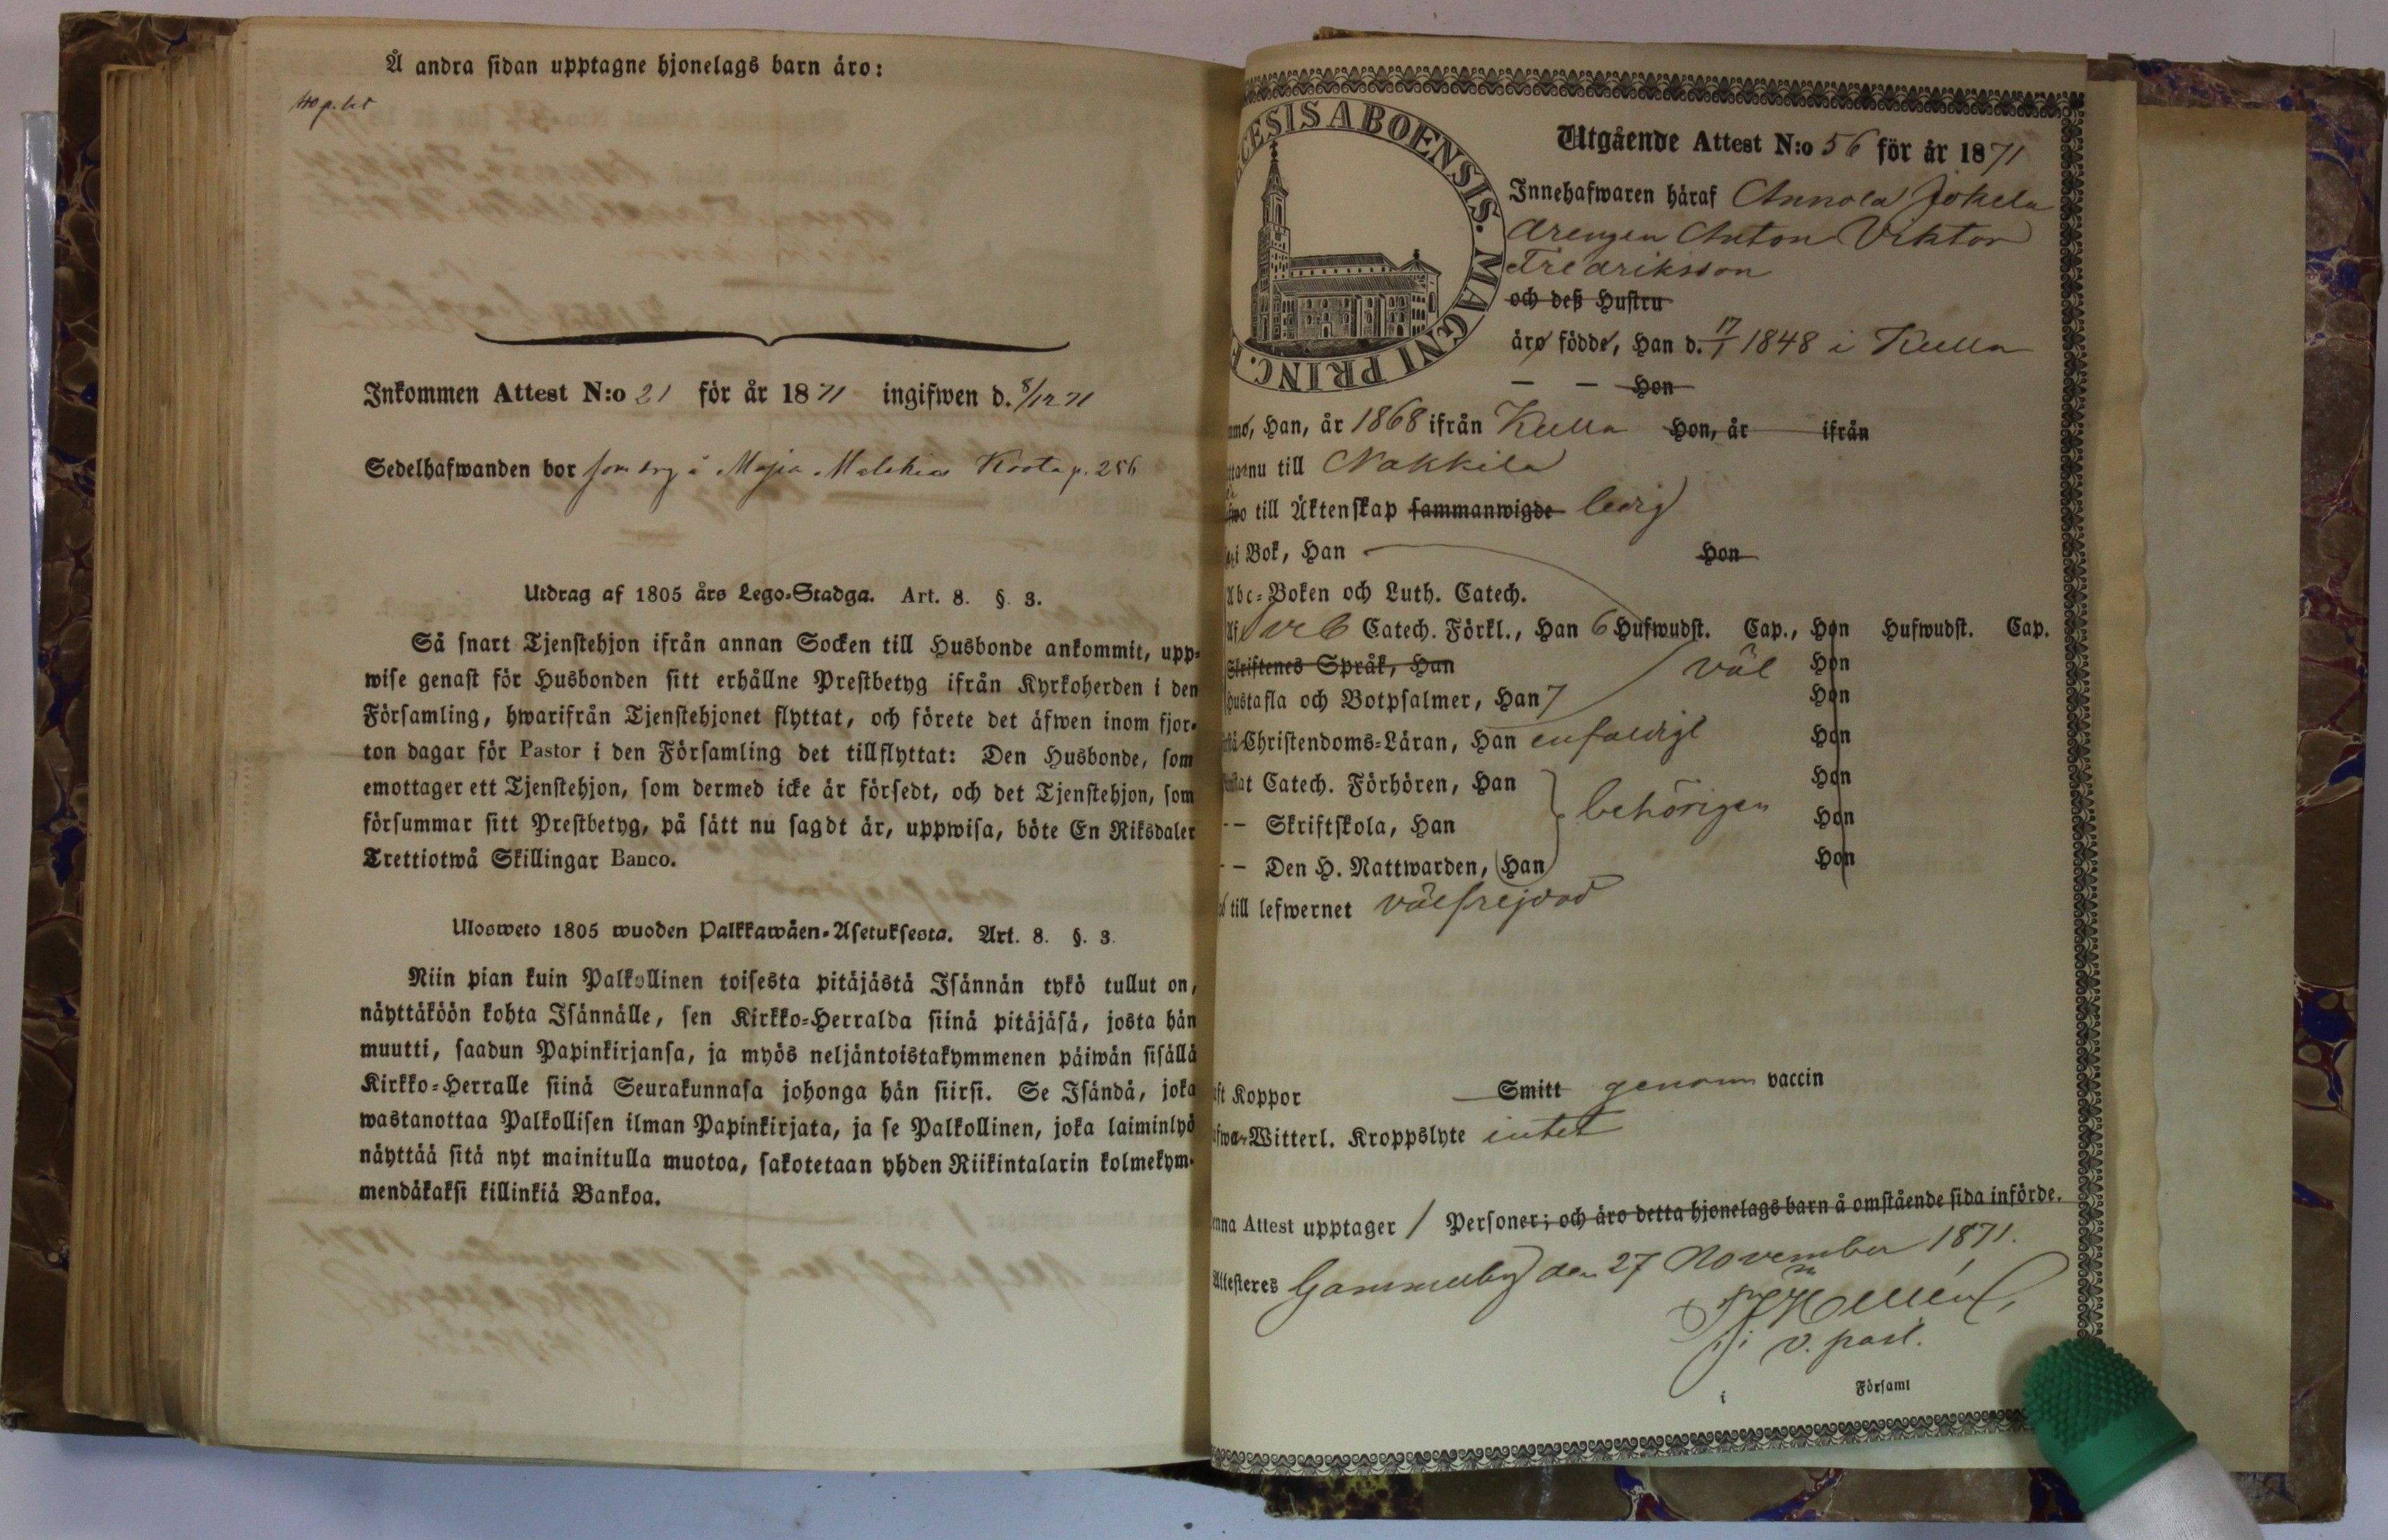 Å andra sidan upptagne hjonelags barn äro:
Inkommen Attest N:o 21 för år 1871 ingifwen d. 8/12 71
Sedelhafwanden bor som drg å Maja Malakias Koota p. 256
Utdrag af 1805 års Lego-Stadga. Art. 8. §. 3.
Så snart Tjenstehjon ifrån annan Socken till Husbonde ankommit, upp-
wise genast för Husbonden sitt erhållne Prestbetyg ifrån Kyrkoherden i den
Församling, hwarifrån Tjenstehjonet flyttat, och förete det äfwen inom fjor-
ton dagar för Pastor i den Församling det tillflyttat: Den Husbonde, som
emottager ett Tjenstehjon, som dermed icke är försedt, och det Tjenstehjon, som
försummar sitt Prestbetyg, på sätt nu sagdt är, uppwisa, böte En Riksdaler
Trettiotwå Skillingar Banco.
Ulosweto 1805 wuoden Palkkawäen-Asetuksesta. Art. 8. §. 3.
Niin pian kuin Palkollinen toisesta pitäjästä Isännän tykö tullut on,
näyttäköön kohta Isännälle, sen Kirkko-Herralda siinä pitäjäsä, josta hän
muutti, saadun Papinkirjansa, ja myös neljäntoistakymmenen päiwän sisällä
Kirkko-Herralle siinä Seurakunnasa johonga hän siirsi. Se Isändä, joka
wastanottaa Palkollisen ilman Papinkirjata, ja se Palkollinen, joka laiminlyö
näyttää sitä nyt mainitulla muotoa, sakotetaan yhden Riikintalarin kolmekym-
mendäkaksi killinkiä Bankoa.
CESIS ABOENSIS. MAGNI PRINC. F
Utgående Attest N:o 56 för år 1871
Innehafwaren häraf Annola Jokela
drengen Anton Viktor
Fredriksson
och deß Hustru
äro födde, Han d. 17/1 1848 i Kulla
— — Hon
Han, år 1868 ifrån Kulla Hon, år ifrån
nu till Nakkila
till Äktenskap sammanwigde ledig
i Bok, Han Hon
Abc-Boken och Luth. Catech.
Catech. Förkl., Han 6 Hufwudst. Cap., Hon Hufwudst. Cap.
Skriftenes Språk, Han väl Hon
Hustafla och Botpsalmer, Han 7 Hon
Christendoms-Läran, Han enfaldigt Hon
Catech. Förhören, Han Hon
— Skriftskola, Han behörigen Hon
— Den H. Nattwarden, Han Hon
till lefwernet välfrejdad
Koppor Smitt genom vaccin
Witterl. Kroppslyte intet
Attest upptager 1 Personer; och äro detta hjonelags barn å omstående sida införde.
Attesteres Gammelby den 27 November 1871.
v. past.
i Församl